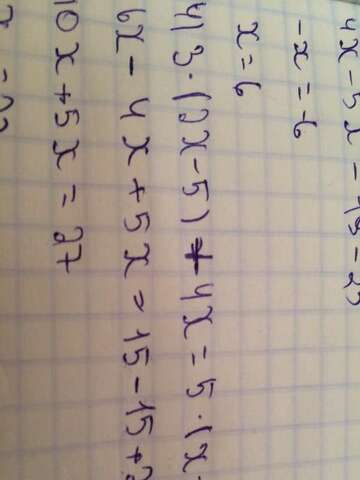 4x-5x=
-x=-6
x=6
4) 3·(2x-5)+4x=5·(x-
6x-4x+5x=15-15+
10x+5x=27